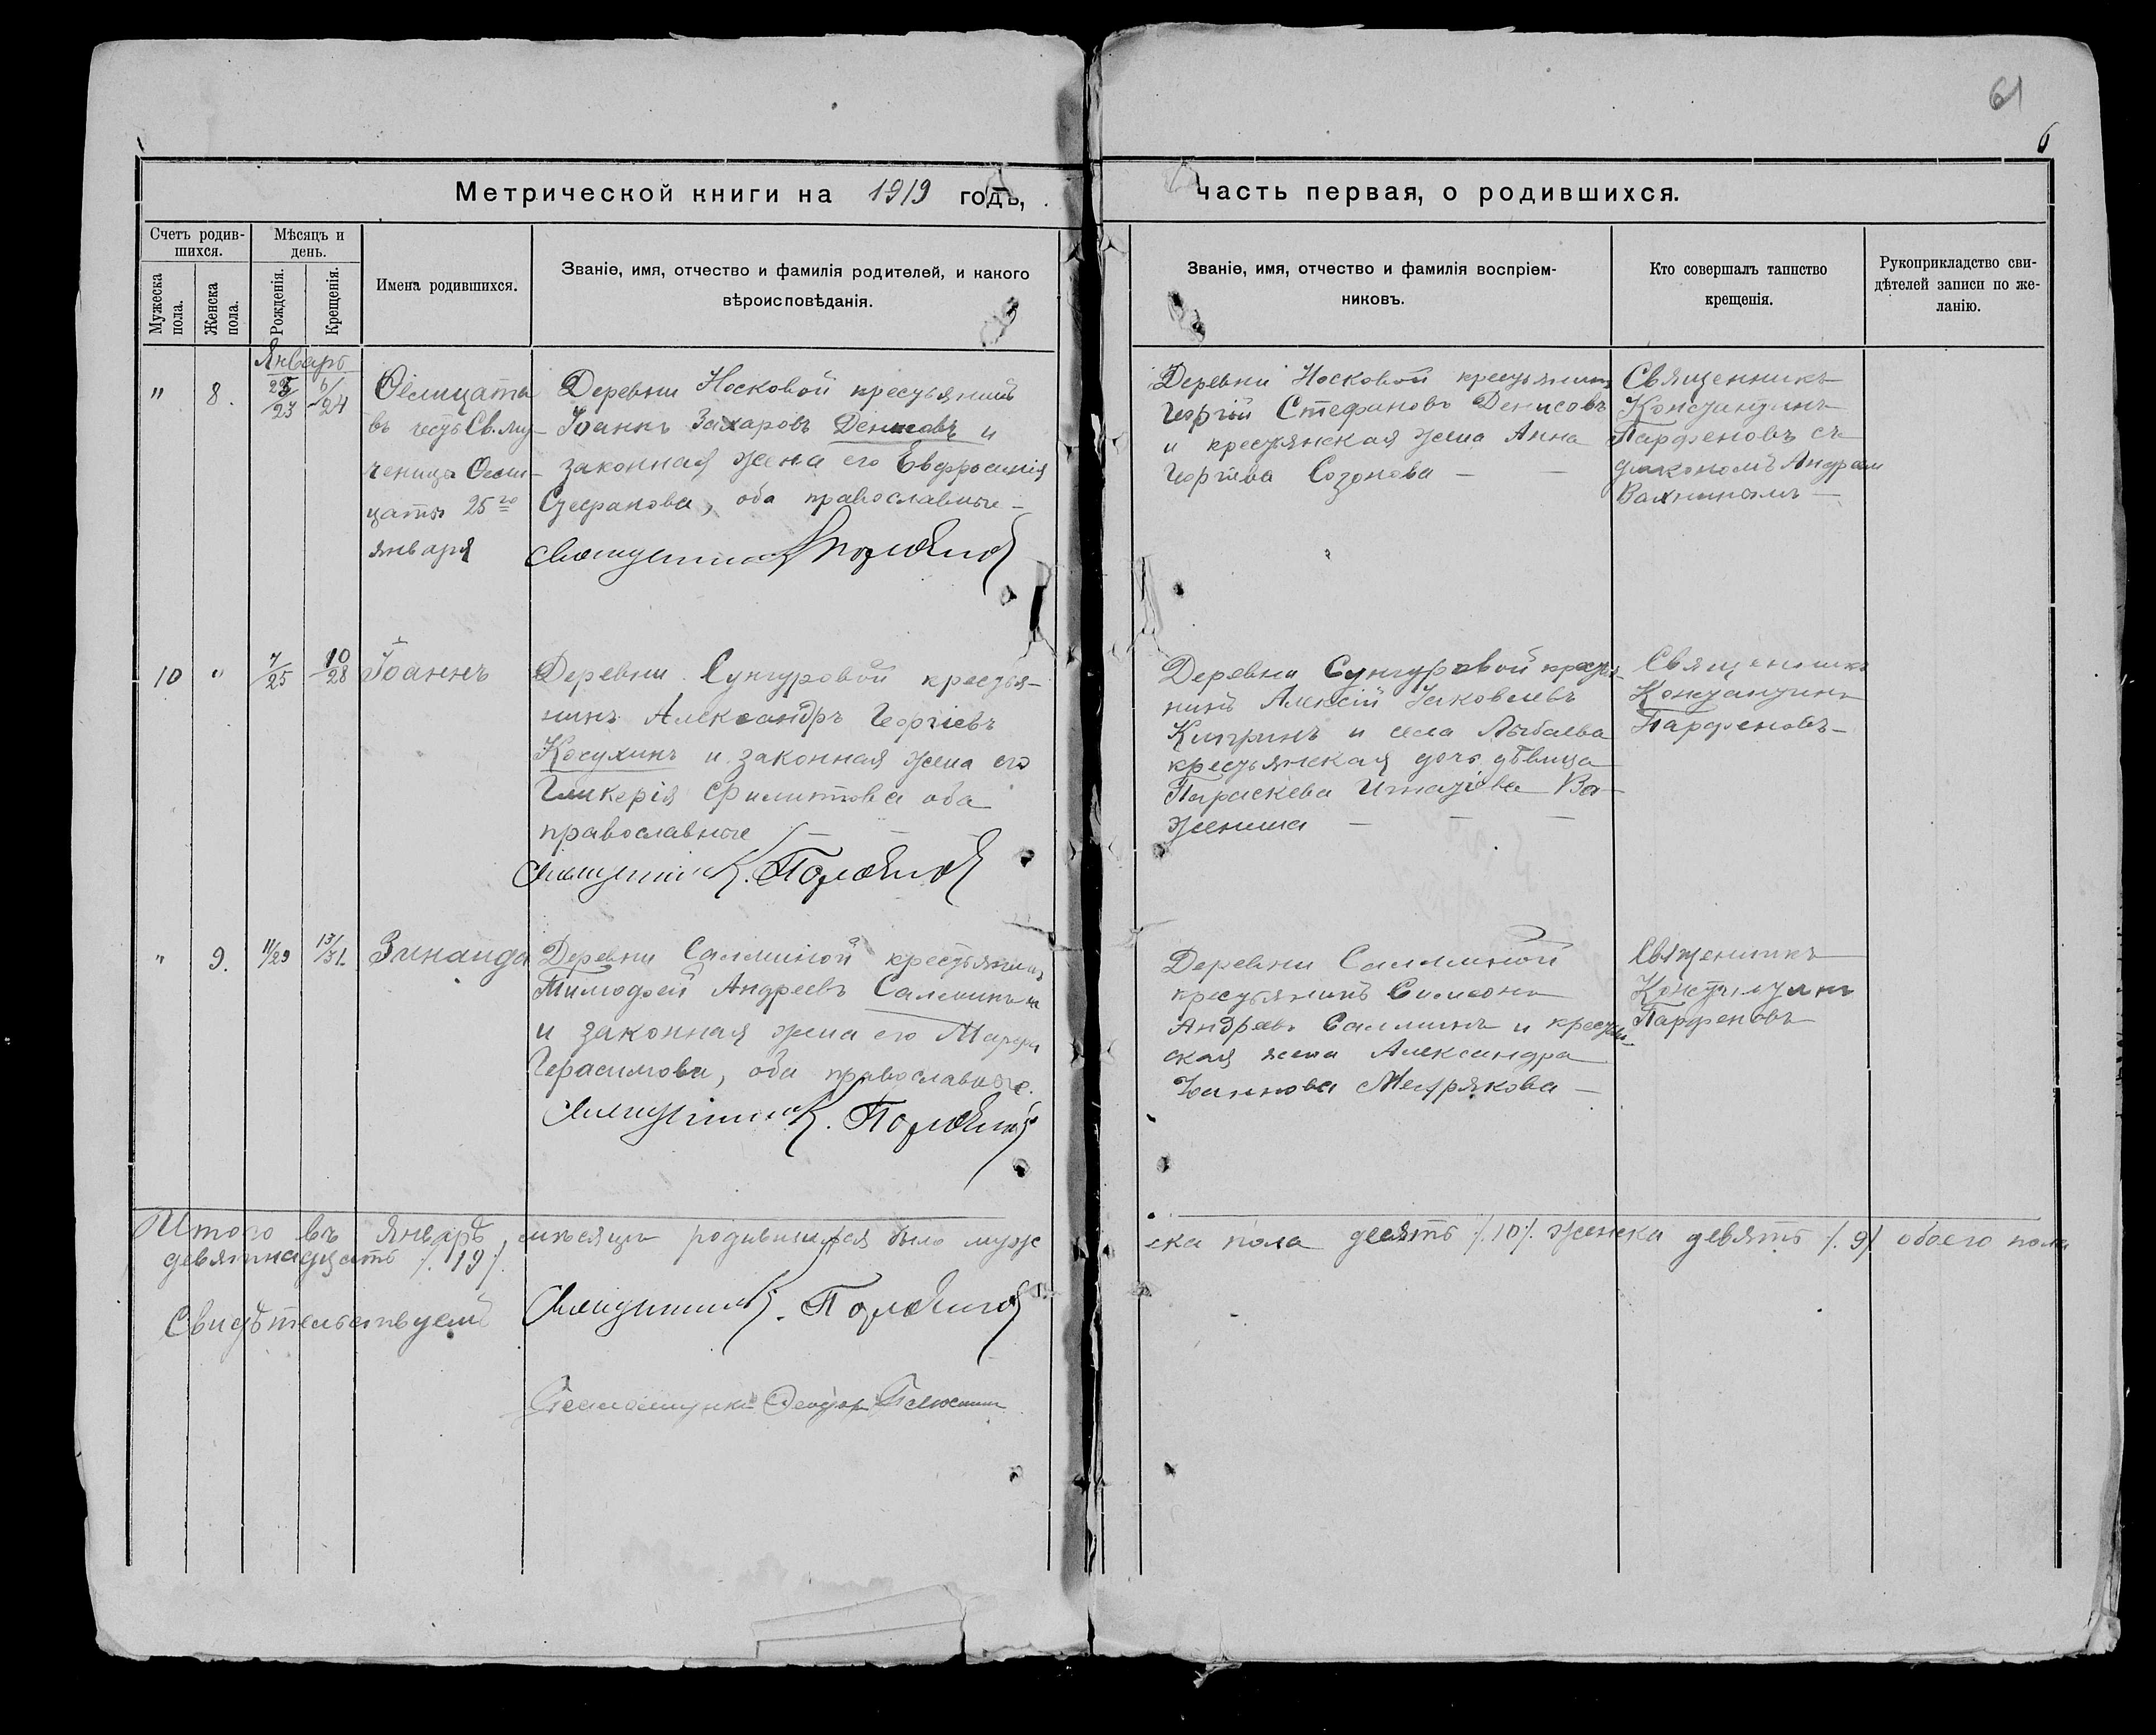 61
6
Метрической книги на 1919 годъ,
часть первая, о родившихся.
Счетъ родив-
шихся.
Мужеска
пола.
Женска
пола.
Мѣсяцъ и
день.
Рожденія.
Крещенія.
Имена родившихся.
Званіе, имя, отчество и фамилія родителей, и какого
вѣроисповѣданія.
Званіе, имя, отчество и фамилія воспріем-
никовъ.
Кто совершалъ таинство
крещенія.
Рукоприкладство сви-
дѣтелей записи по же-
ланію.
Январь
" 8. 5/23 6/24
въ честь Св. му-
ченицы
25го
января
Деревни Носковой крестьянинъ
Іоаннъ Захаровъ Денисовъ и
законная жена его Евфросинія
Стефанова, оба православные –
Деревни Носковой крестьянинъ
Георгій Стефановъ Денисовъ
и крестьянская жена Анна
Георгіева Созонова – –
Священникъ
Константинъ
Парфеновъ съ
діакономъ Андреем
Вахниномъ –
10 " 7/25 10/28
Іоаннъ
Деревни Сунгуровой крестья-
нинъ Александръ Георгіевъ
Косухинъ и законная жена его
Гликерія Филиппова оба
православные – – –
Священникъ К. Парфеновъ
Деревни Сунгуровой крестья-
нинъ Алексій Іаковлевъ
Кипринъ и села Лыбаева
крестьянская дочь дѣвица
Параскева Игнатіева Ва-
женина – – –
Священникъ
Константинъ
Парфеновъ –
" 9. 11/29 13/31.
Зинаида
Деревни Салминой крестьянинъ
Тимофей Андреевъ Салминъ и
и законная жена его Марфа
Герасимова, оба православные.
Священникъ К. Парфеновъ
Деревни Салминой
крестьянинъ Симеонъ
Андреевъ Салминъ и крестьян-
ская жена Александра
Іоаннова Мезрякова –
Священникъ
Константинъ
Парфеновъ
Итого въ январѣ мѣсяцѣ родившихся было муже
ска пола десять /.10/. женска девять /.9/. обоего пола
девятнадцать /.19/.
Свидѣтельствуемъ
Священникъ К. Парфеновъ
Псаломщикъ Феодоръ